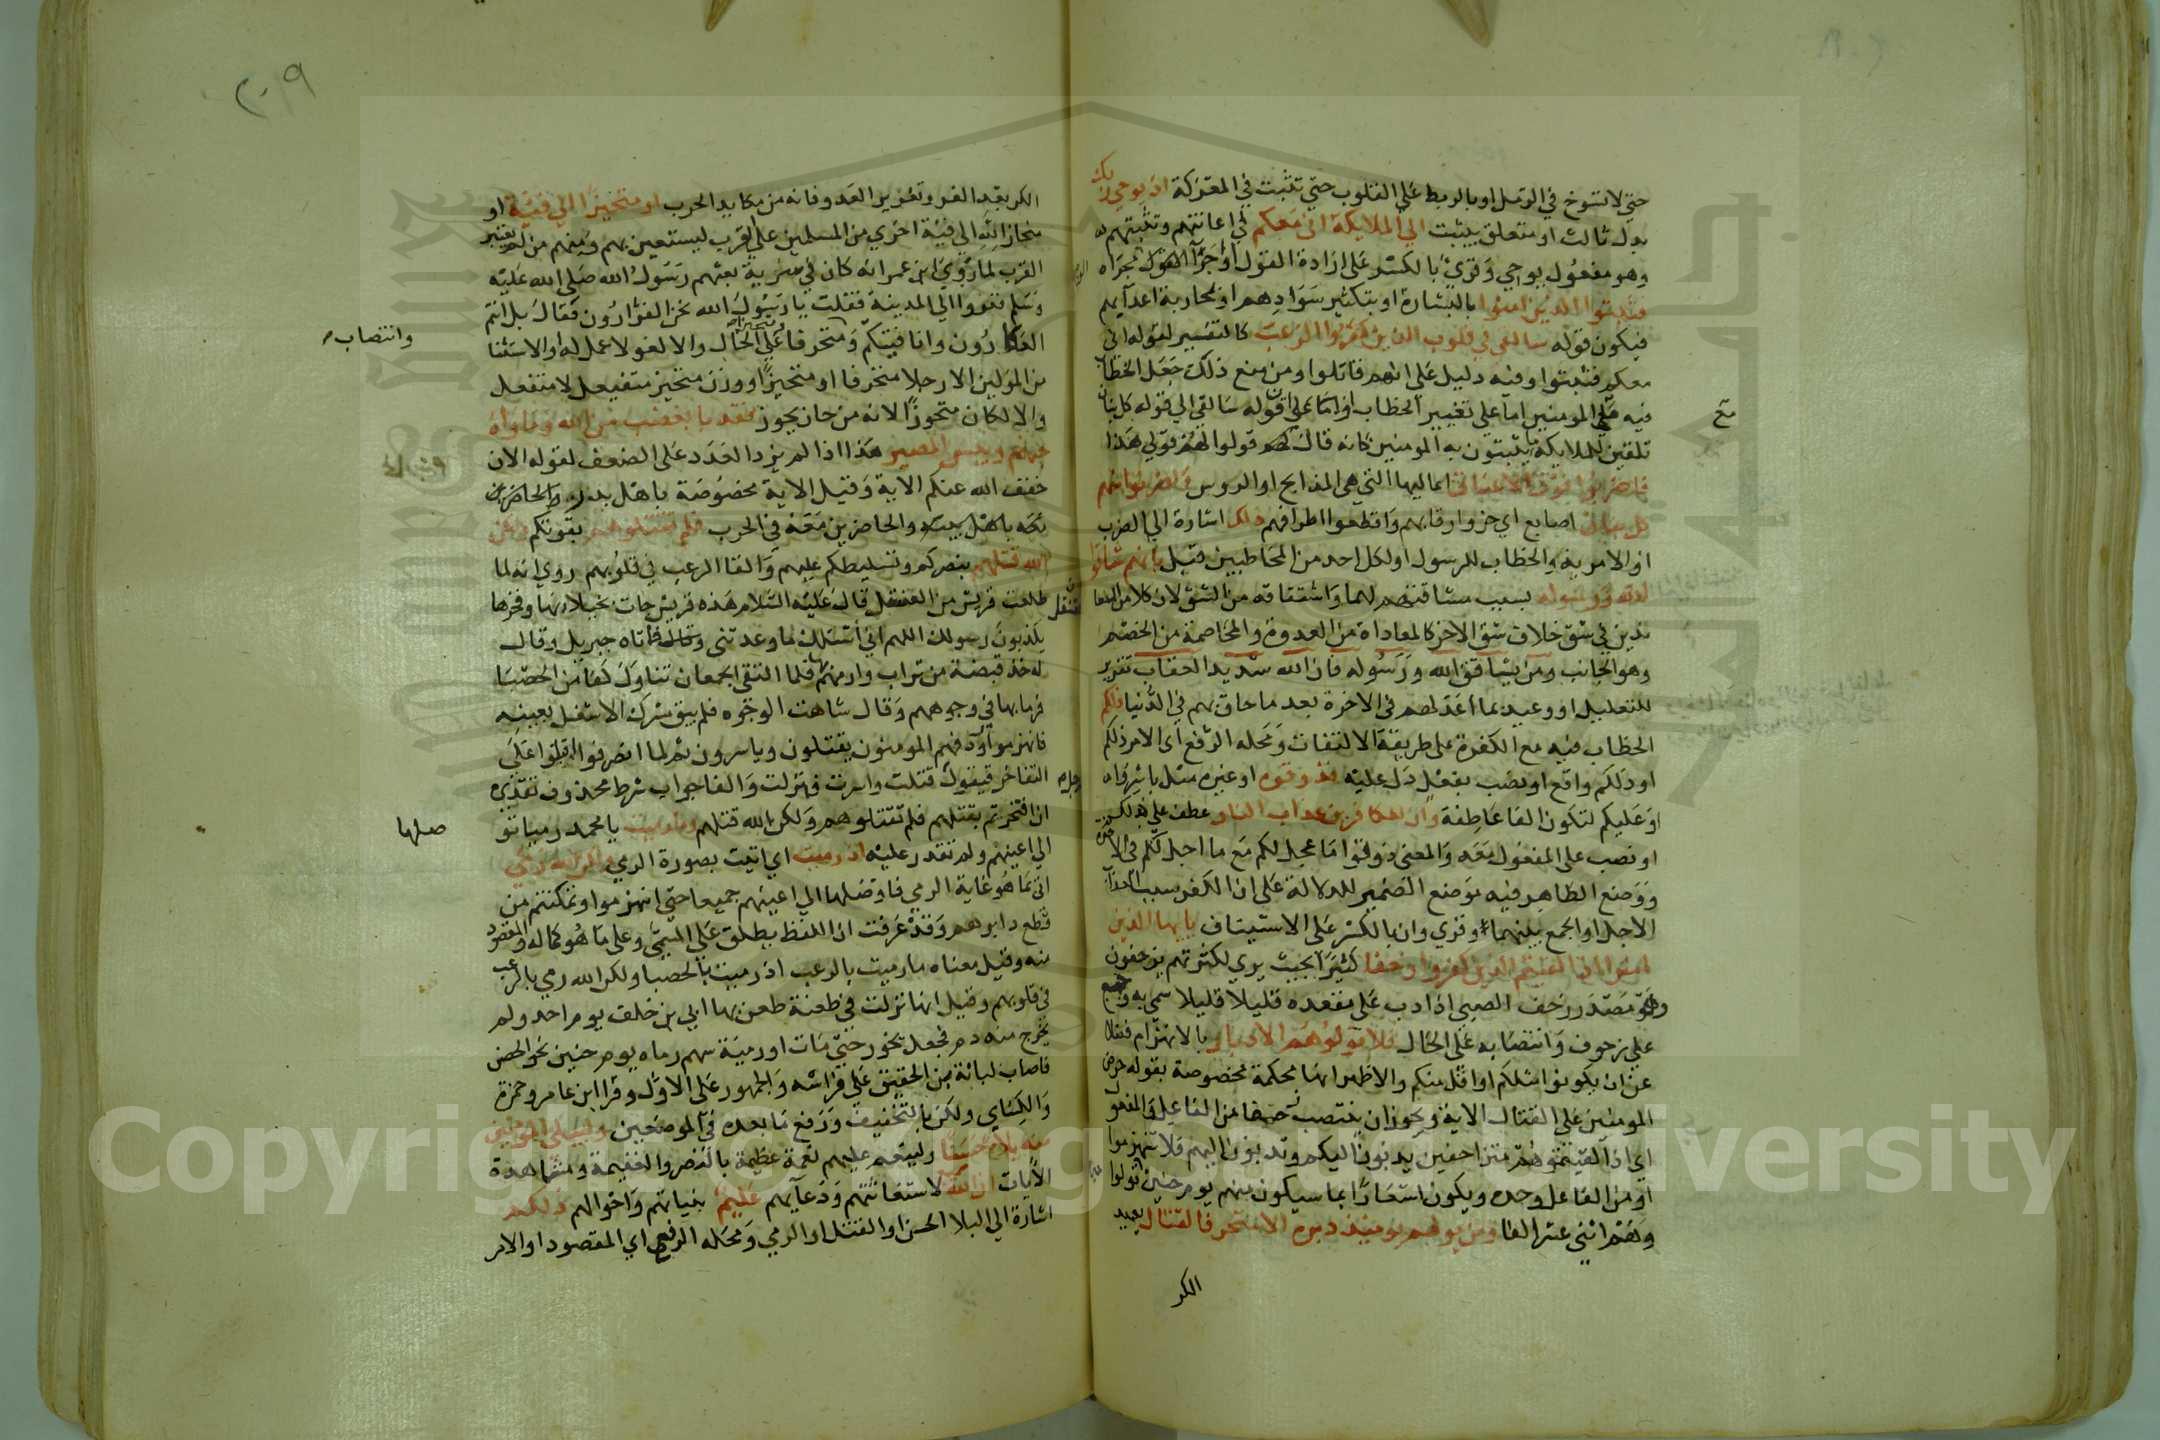 حتي لا تسوخ في الرمل او بالربط علي القلوب حتي تثبت في المعركة اذ يوحي ربك
بدل ثالث او متعلق بيثبت الي الملايكة اني معكم في اعانتهم وتثبيتهم
وهو مفعول يوحي وقري بالكسر علي ارادة القول او اجراء القول مجراه
فثبتوا الذين امنوا بالبشارة او بتكثير سوادهم او محاربة اعدايهم
فيكون قوله سالقي في قلوب الذين كفروا الرعب كالتفسير لقوله اني
معكم فثبتوا وفيه دليل علي انهم قاتلوا ومن منع ذلك جعل الخطاب
فيه مع المومنين اما علي تغيير الخطاب او اما علي ان قوله سالقي الي قوله كل بنان
تلقين للملايكة ما يثبتون به المومنين كانه قال قولوا لهم قولي هذا
فاضربوا فوق الاعناق اعاليها التي هي المذابح او الروس واضربوا منهم
كل بنان اصابع اي حزوا رقابهم واقطعوا اطرافهم ذلك اشارة الي الضرب
او الامر به والخطاب للرسول او لكل احد من المخاطبين قبل بانهم شاقوا
الله ورسوله بسبب مشاقتهم لهما واشتقاقه من الشق لان كلا من المعا
ندين في شق خلاف شق الاخر كالمعاداة من العدوة والمخاصمة من الخصم
وهو الجانب ومن يشاقق الله ورسوله فان الله شديد العقاب تقرير
للتعليل او وعيد بما اعد لهم في الاخرة بعد ما حاق بهم في الدنيا ذلكم
الخطاب فيه مع الكفرة علي طريقة الالتفات ومحله الرفع اي الامر ذلكم
او ذلكم واقع او نصب بفعل دل عليه فذوقوه او غيره مثل باشروه
او عليكم لتكون الفا عاطفة وان للكافرين عذاب النار عطف علي ذلكم
او نصب علي المفعول معه والمعني ذوقوا ما عجل لكم مع ما اجل لكم في الاخرة
ووضع الظاهر فيه موضع الضمير للدلالة علي ان الكفر سبب العذاب
الاجل او الجمع بينهما وقري وان بالكسر علي الاستيناف يايها الذين
امنوا اذا لقيتم الذين كفروا زحفا كثيرا بحيث يري لكثرتهم يزحفون
وهو مصدر زحف الصبي اذا دب علي مقعده قليلا قليلا سمي به وجمع
علي زحوف وانتصابه علي الحال فلا تولوهم الادبار بالانهزام فضلا
عن ان يكونوا مثلكم او اقل منكم والاظهر انها محكمة مخصوصة بقوله حرض
المومنين علي القتال الاية ويجوز ان ينتصب زحفا من الفاعل والمفعول
اي اذا لقيتموهم متزاحفين يدبون اليكم وتدبون اليهم فلا تنهزموا
او من الفاعل وحده ويكون اشعارا بما سيكون منهم يوم حنين تولوا
وهم اثني عشر الفا ومن يولهم يوميذ دبره الا متحرفا لقتال يريد
الكر
مع
٢٠٩
الكر بعد الفر وتغرير العدو فانه من مكايد الحرب او متحيزا الي فئة او
منحازا الي فئة اخري من المسلمين علي القرب ليستعين بهم ومنهم من لم يعتبر
القرب لما روي ابن عمر انه كان في سرية بعثهم رسول الله صلي الله عليه
وسلم ففروا الي المدينة فقلت يا رسول الله نحن الفرارون فقال بل انتم
العكارون وانا فئتكم ومتحرفا علي الحال والا لغو لا عمل له او الاستثنا
من المولين الا رجلا متحرفا او متحيزا ووزن متحيز متفيعل لا متفعل
والا لكان متحوزا لانه من حاز يحوز فقد با بغضب من الله وماواه
جهنم وبيس المصير هذا اذا لم يزد العدد علي الضعف لقوله الان
خفف الله عنكم الاية وقيل الاية مخصوصة باهل بدر والحاضرين
معه باهل بيته والحاضرين معه في الحرب فلم تقتلوهم بقوتكم ولكن
الله قتلهم بنصركم وتسليطكم عليهم والقا الرعب في قلوبهم روي انه لما
طلعت قريش من العقنقل قال عليه السلام هذه قريش جات بخيلايها وفخرها
يكذبون رسولك اللهم اني اسئلك ما وعدتني فاتاه جبريل وقال
له خذ قبضة من تراب وارمهم بها فلما التقي الجمعان تناول كفا من الحصبا
فرما بها في وجوههم وقال شاهت الوجوه فلم يبق مشرك الا شغل بعينه
فانهزموا وردفهم المومنون يقتلون وياسرون ثم لما انصرفوا اقبلوا علي
التفاخر فيقول قتلت واسرت فنزلت والفا جواب شرط محذوف تقديره
ان افتخرتم بقتلهم فلم تقتلوهم ولكن الله قتلهم وما رميت يا محمد رميا توصلها
الي اعينهم ولم تقدر عليه اذ رميت اي اتيت بصورة الرمي ولكن الله رمي
اتي بما هو غاية الرمي فاوصلها الي اعينهم جميعا حتي انهزموا وتمكنتم من
قطع دابرهم وقد عرفت ان اللفظ يطلق علي المسمي وعلي ما هو كماله والمقصود
منه وقيل معناه ما رميت بالرعب اذ رميت بالحصبا ولكن الله رمي بالرعب
في قلوبهم وقيل انها نزلت في طعنة طعن بها ابي بن خلف يوم احد ولم
يخرج منه دم فجعل يخور حتي مات او رمية سهم رماه يوم حنين نحو الحصن
فاصاب لبابة بن الحقيق علي فراشه والجمهور علي الاول وقرا ابن عامر وحمزة
والكسائي ولكن بالتخفيف ورفع ما بعده في الموضعين وليبلي المومنين
منه بلاء حسنا ولينعم عليهم نعمة عظيمة بالنصر والغنيمة ومشاهدة
الايات ان الله سميع لاستغاثتهم ودعايهم عليم بنياتهم واحوالهم ذلكم
اشارة الي البلا الحسن او القتل او الرمي ومحله الرفع اي المقصود او الامر
وانتصاب
صلها
Copyright © King Saud University